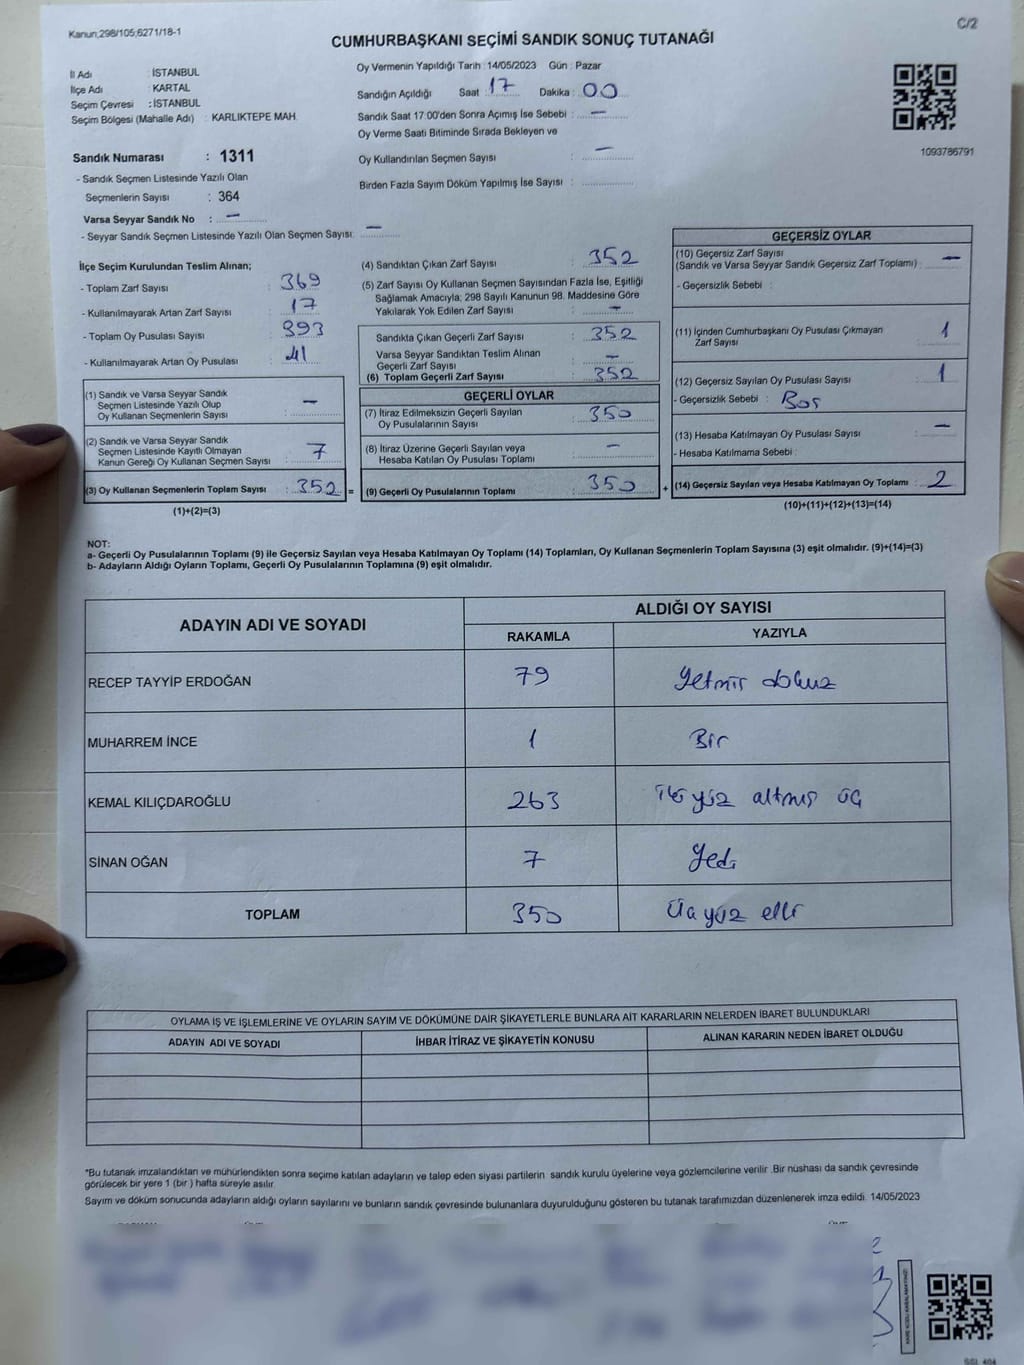 Kanun;298/105;6271/18-1
C/2
CUMHURBAŞKANI SEÇİMİ SANDIK SONUÇ TUTANAĞI
İl Adı : İSTANBUL
İlçe Adı : KARTAL
Seçim Çevresi : İSTANBUL
Seçim Bölgesi (Mahalle Adı) : KARLIKTEPE MAH.
Sandık Numarası : 1311
- Sandık Seçmen Listesinde Yazılı Olan
Seçmenlerin Sayısı : 364
Varsa Seyyar Sandık No : —
- Seyyar Sandık Seçmen Listesinde Yazılı Olan Seçmen Sayısı: —
Oy Vermenin Yapıldığı Tarih : 14/05/2023 Gün : Pazar
Sandığın Açıldığı Saat : 17 Dakika : 00
Sandık Saat 17:00'den Sonra Açımış İse Sebebi : —
Oy Verme Saati Bitiminde Sırada Bekleyen ve
Oy Kullandırılan Seçmen Sayısı : —
Birden Fazla Sayım Döküm Yapılmış İse Sayısı :
1093786791
İlçe Seçim Kurulundan Teslim Alınan;
- Toplam Zarf Sayısı : 369
- Kullanılmayarak Artan Zarf Sayısı : 17
- Toplam Oy Pusulası Sayısı : 393
- Kullanılmayarak Artan Oy Pusulası : 41
(1) Sandık ve Varsa Seyyar Sandık
Seçmen Listesinde Yazılı Olup
Oy Kullanan Seçmenlerin Sayısı : —
(2) Sandık ve Varsa Seyyar Sandık
Seçmen Listesinde Kayıtlı Olmayan
Kanun Gereği Oy Kullanan Seçmen Sayısı : 7
(3) Oy Kullanan Seçmenlerin Toplam Sayısı : 352 =
(1)+(2)=(3)
(4) Sandıktan Çıkan Zarf Sayısı : 352
(5) Zarf Sayısı Oy Kullanan Seçmen Sayısından Fazla İse, Eşitliği
Sağlamak Amacıyla; 298 Sayılı Kanunun 98. Maddesine Göre
Yakılarak Yok Edilen Zarf Sayısı : —
Sandıkta Çıkan Geçerli Zarf Sayısı : 352
Varsa Seyyar Sandıktan Teslim Alınan
Geçerli Zarf Sayısı : —
(6) Toplam Geçerli Zarf Sayısı : 352
GEÇERLİ OYLAR
(7) İtiraz Edilmeksizin Geçerli Sayılan
Oy Pusulalarının Sayısı : 350
(8) İtiraz Üzerine Geçerli Sayılan veya
Hesaba Katılan Oy Pusulası Toplamı : —
(9) Geçerli Oy Pusulalarının Toplamı : 350 +
GEÇERSİZ OYLAR
(10) Geçersiz Zarf Sayısı
(Sandık ve Varsa Seyyar Sandık Geçersiz Zarf Toplamı) : —
- Geçersizlik Sebebi :
(11) İçinden Cumhurbaşkanı Oy Pusulası Çıkmayan
Zarf Sayısı : 1
(12) Geçersiz Sayılan Oy Pusulası Sayısı : 1
- Geçersizlik Sebebi : Boş
(13) Hesaba Katılmayan Oy Pusulası Sayısı : —
- Hesaba Katılmama Sebebi :
(14) Geçersiz Sayılan veya Hesaba Katılmayan Oy Toplamı : 2
(10)+(11)+(12)+(13)=(14)
NOT:
a- Geçerli Oy Pusulalarının Toplamı (9) ile Geçersiz Sayılan veya Hesaba Katılmayan Oy Toplamı (14) Toplamları, Oy Kullanan Seçmenlerin Toplam Sayısına (3) eşit olmalıdır. (9)+(14)=(3)
b- Adayların Aldığı Oyların Toplamı, Geçerli Oy Pusulalarının Toplamına (9) eşit olmalıdır.
ADAYIN ADI VE SOYADI ALDIĞI OY SAYISI
RAKAMLA YAZIYLA
RECEP TAYYİP ERDOĞAN 79 Yetmiş dokuz
MUHARREM İNCE 1 Bir
KEMAL KILIÇDAROĞLU 263 iki yüz altmış üç
SİNAN OĞAN 7 Yedi
TOPLAM 350 Üç yüz elli
OYLAMA İŞ VE İŞLEMLERİNE VE OYLARIN SAYIM VE DÖKÜMÜNE DAİR ŞİKAYETLERLE BUNLARA AİT KARARLARIN NELERDEN İBARET BULUNDUKLARI
ADAYIN ADI VE SOYADI İHBAR İTİRAZ VE ŞİKAYETİN KONUSU ALINAN KARARIN NEDEN İBARET OLDUĞU
*Bu tutanak imzalandıktan ve mühürlendikten sonra seçime katılan adayların ve talep eden siyasi partilerin sandık kurulu üyelerine veya gözlemcilerine verilir .Bir nüshası da sandık çevresinde
görülecek bir yere 1 (bir ) hafta süreyle asılır.
Sayım ve döküm sonucunda adayların aldığı oyların sayılarını ve bunların sandık çevresinde bulunanlara duyurulduğunu gösteren bu tutanak tarafımızdan düzenlenerek imza edildi. 14/05/2023